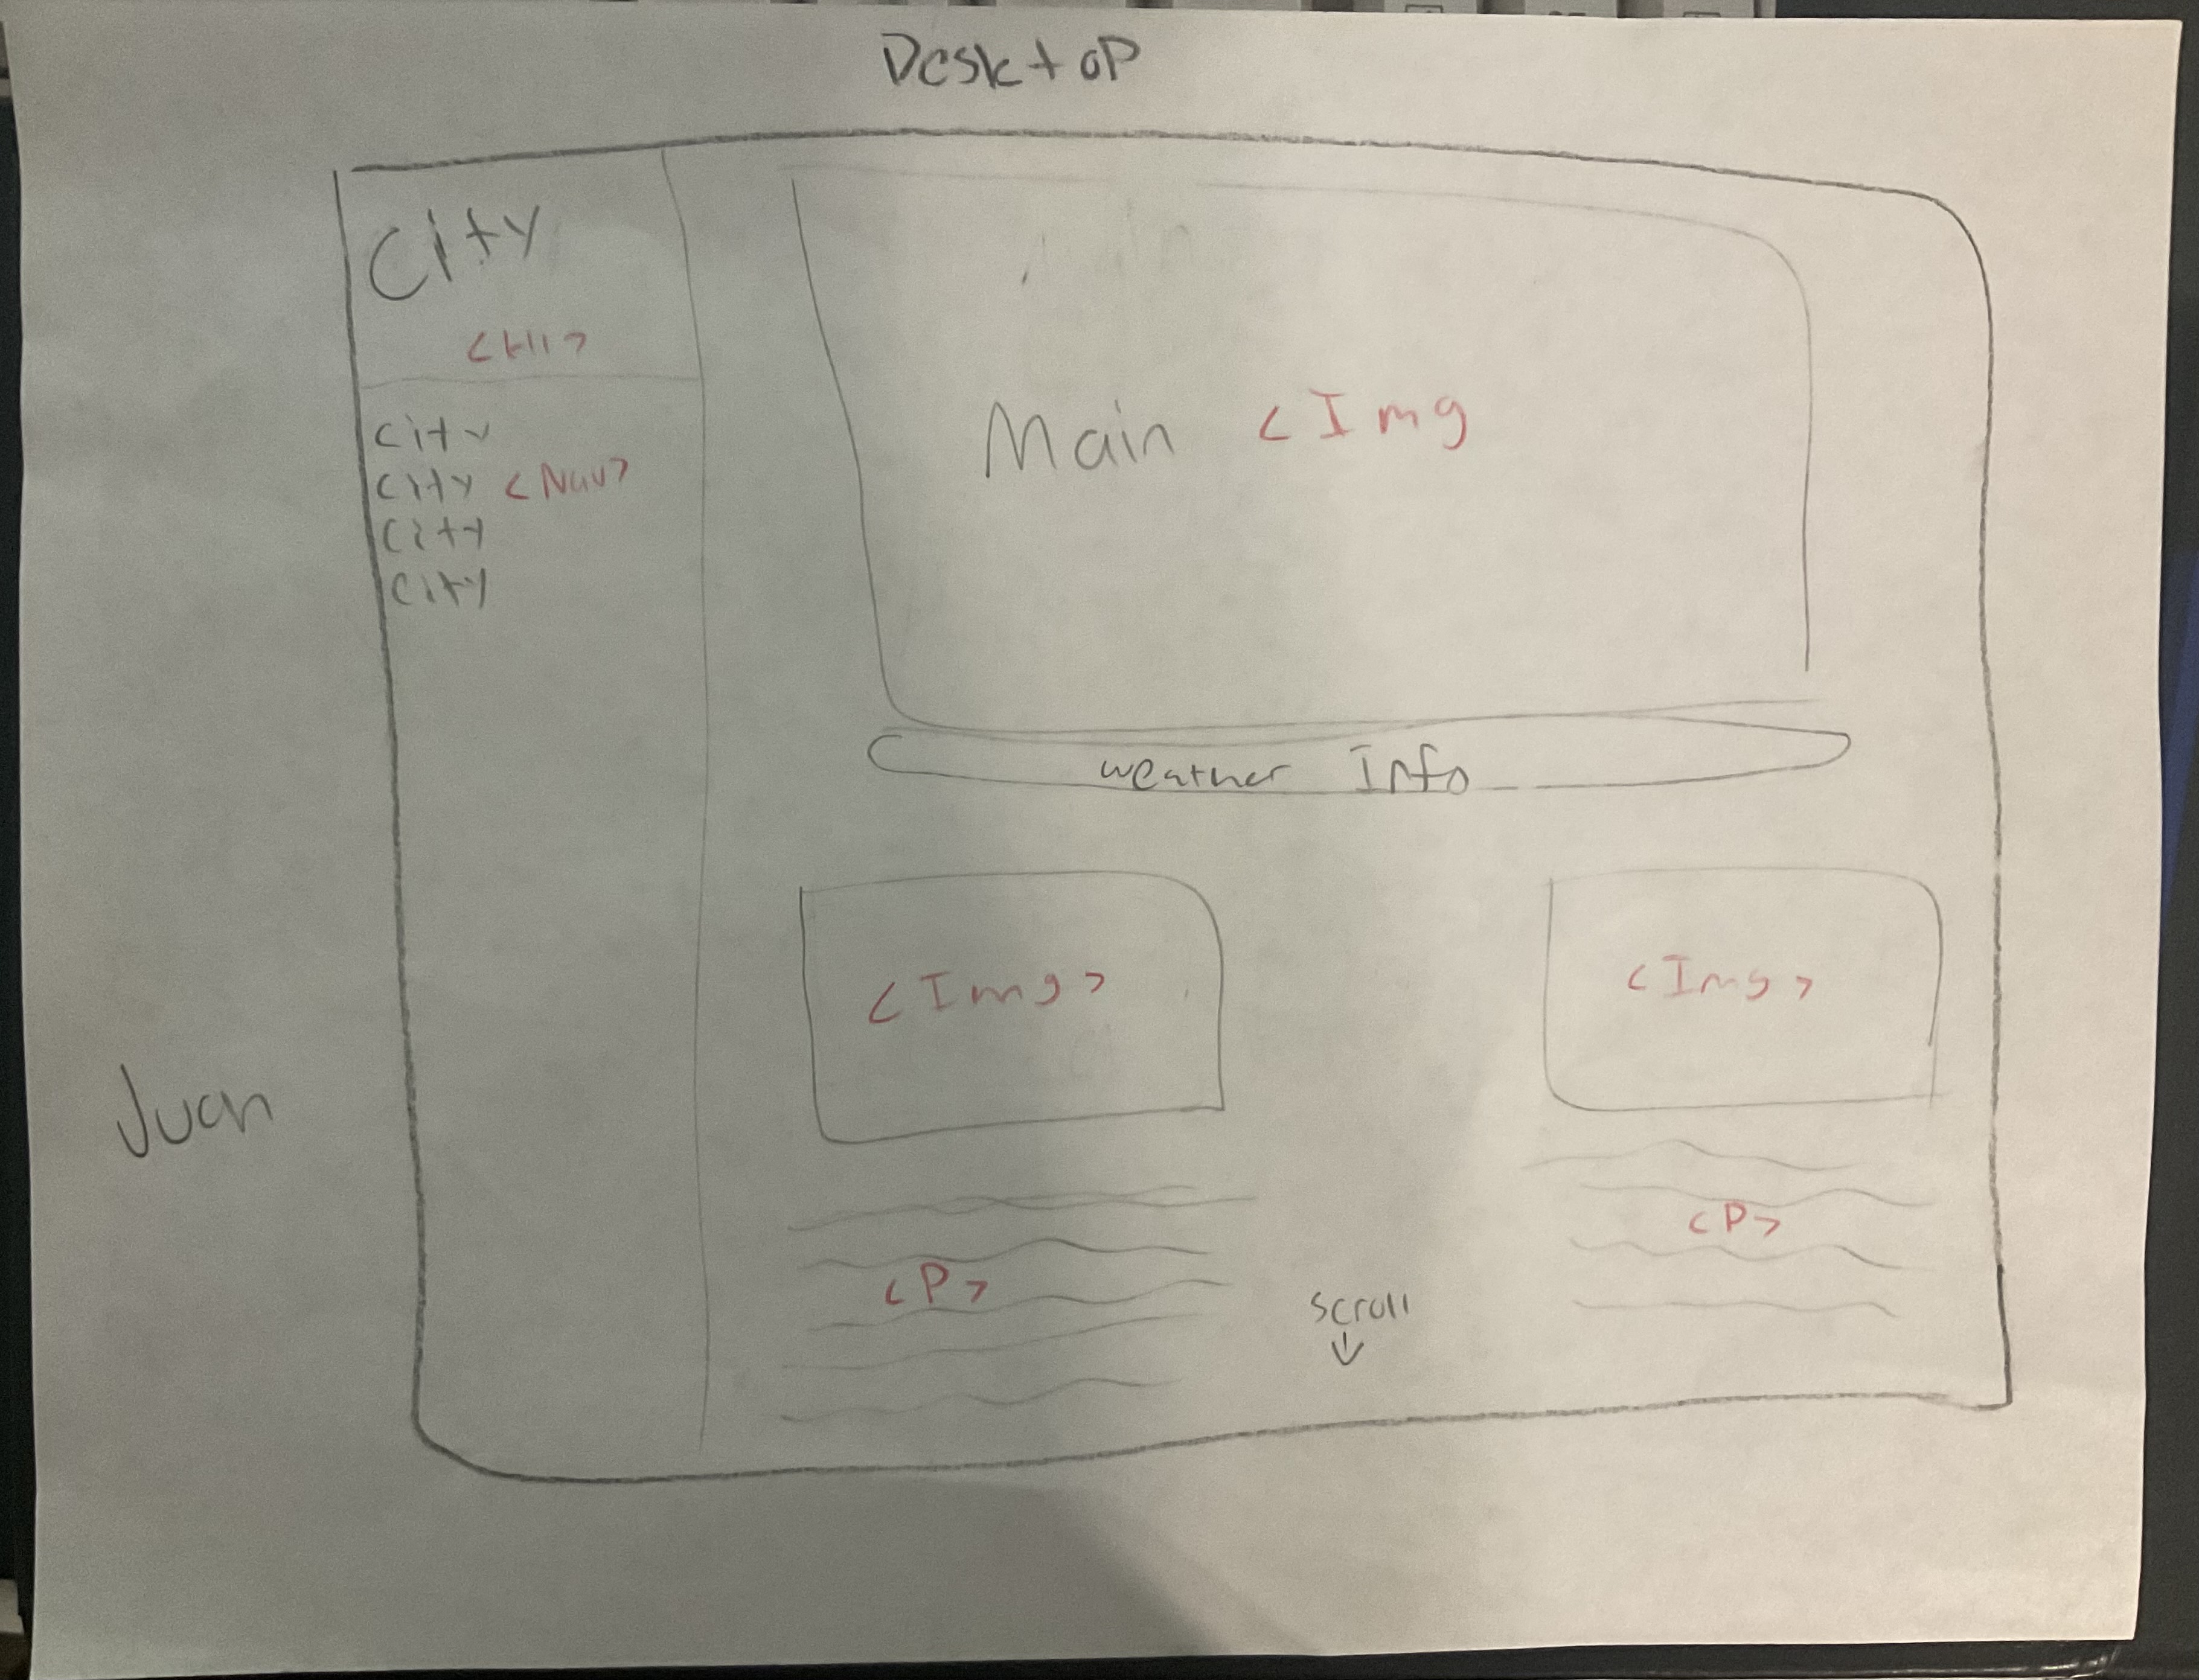 Desktop
City
<H1>
City
City <Nav>
City
City
Main <Img
weather Info
<Img>
<Img>
<P>
<P>
scroll
Juan